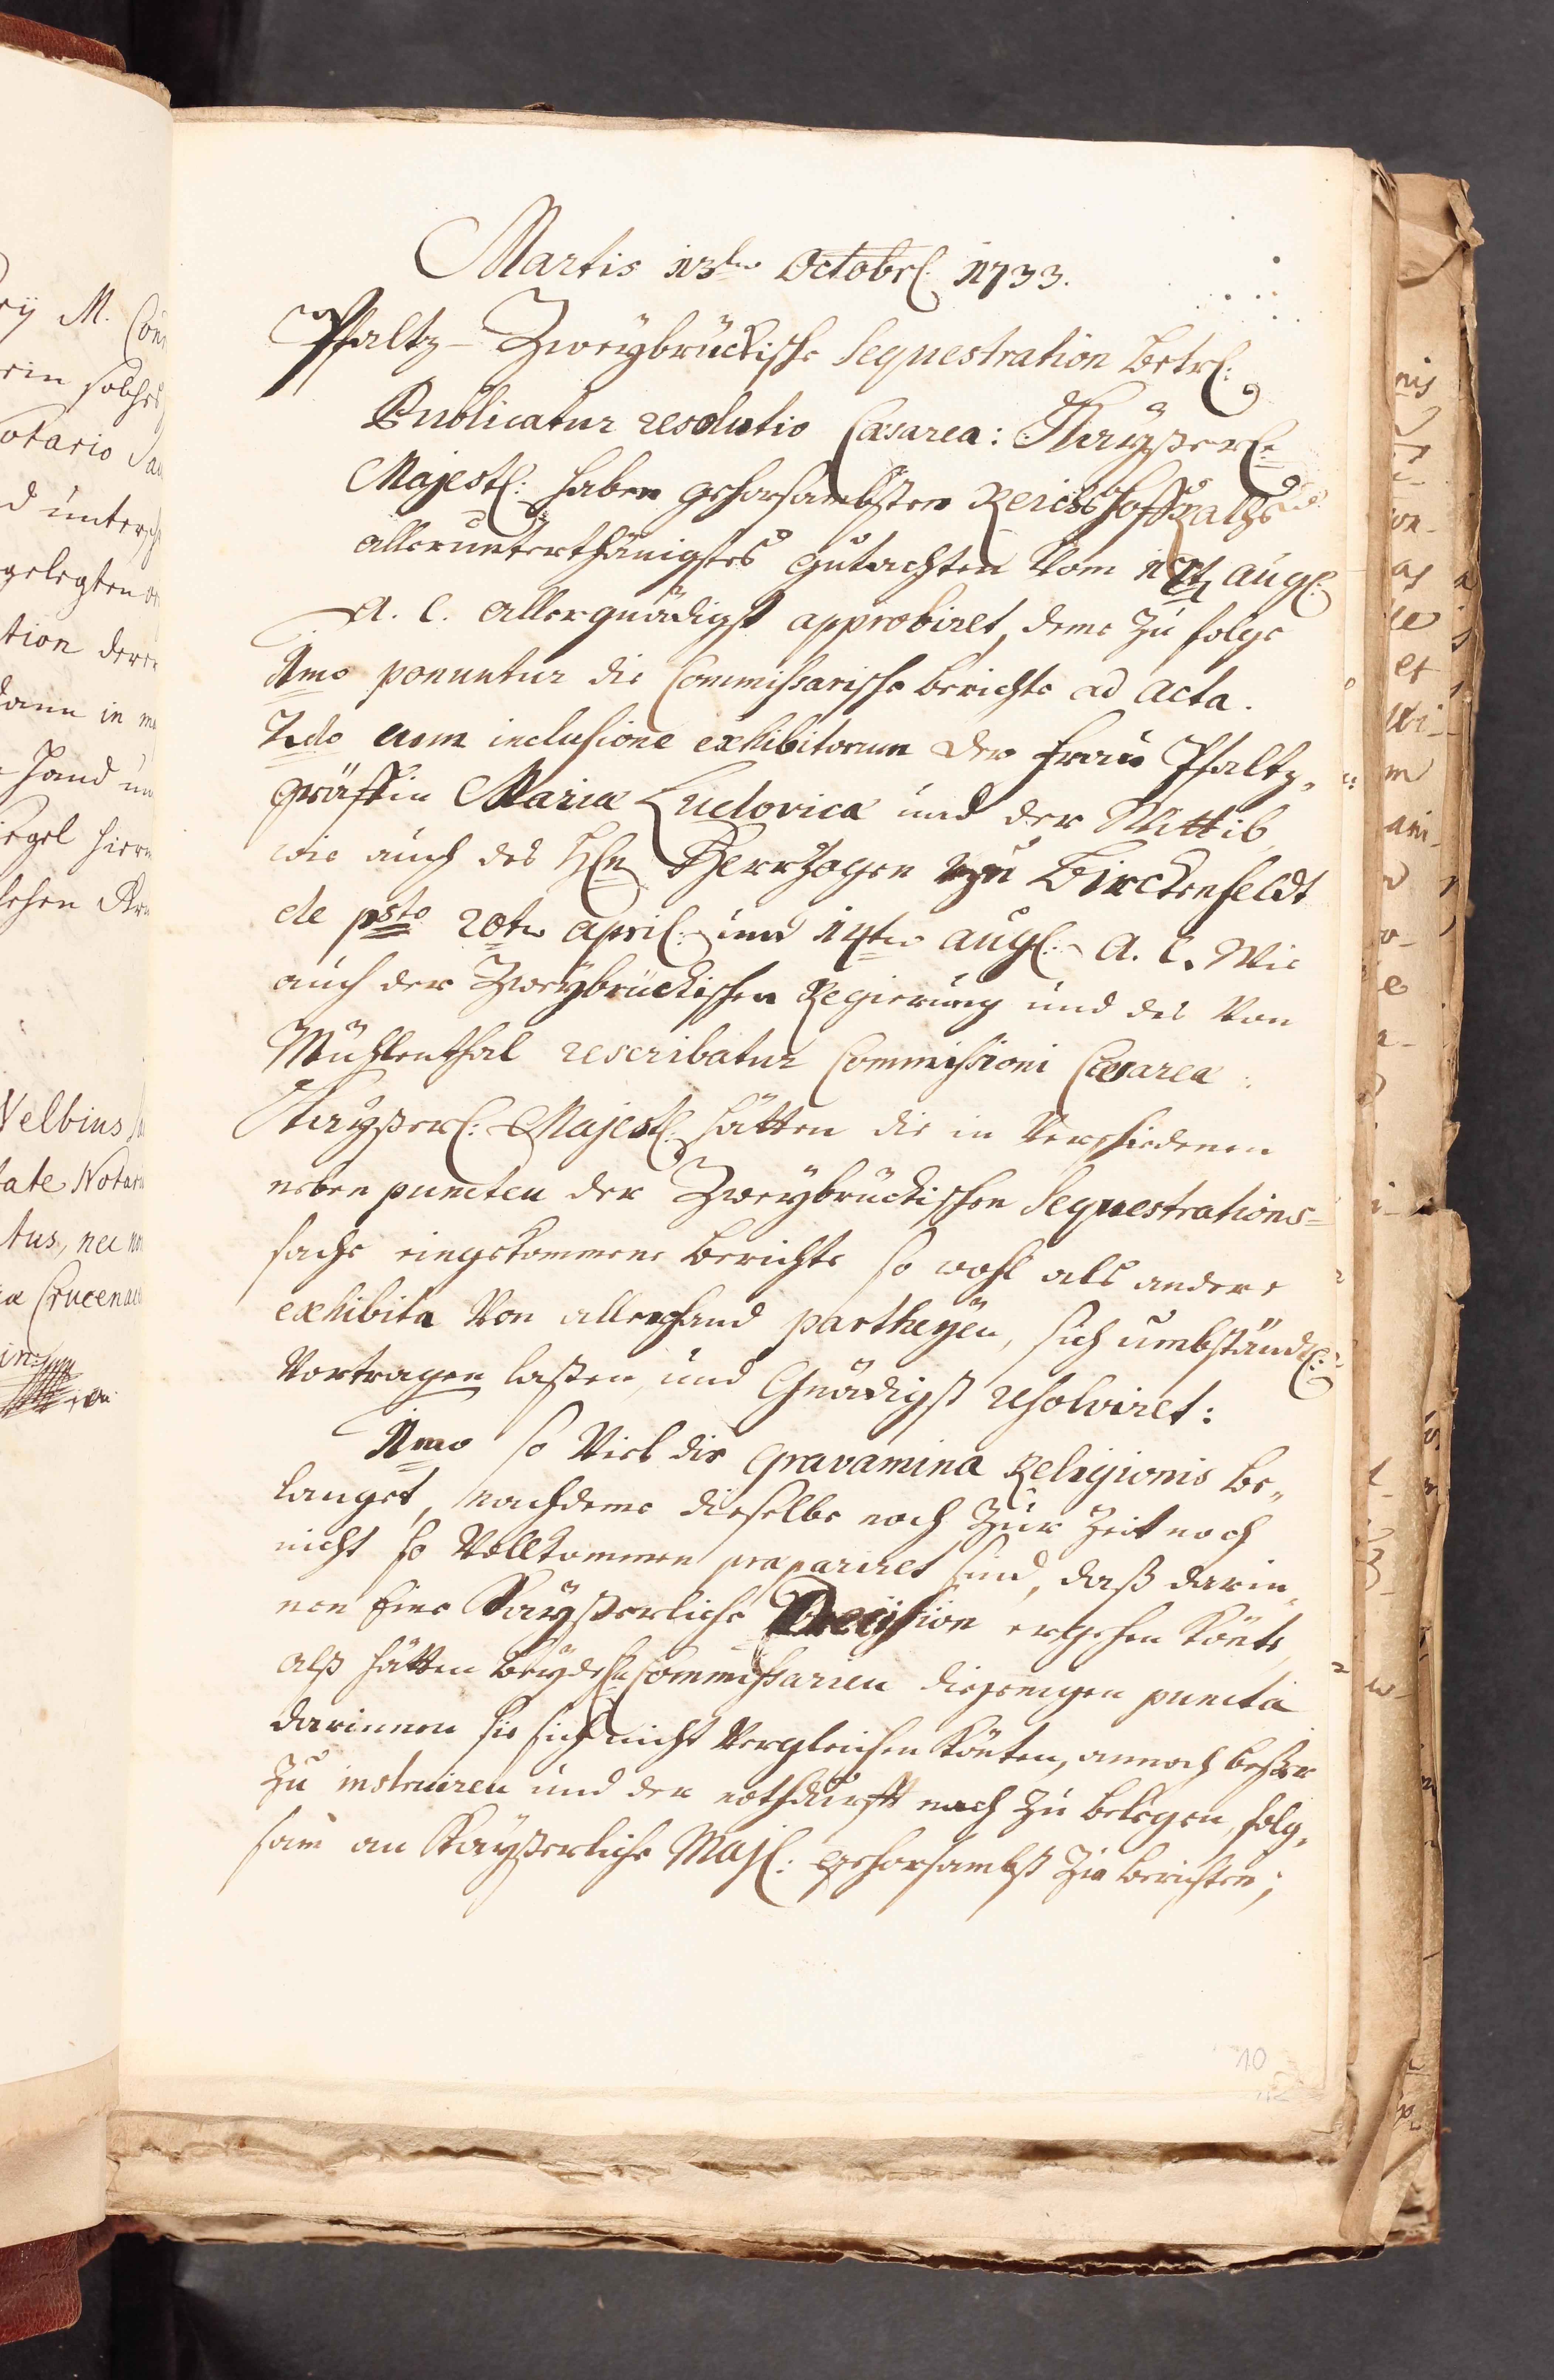 Martis 13ten Octobr: 1733.
Pfaltz-Zweybrückische Sequestration betr:
Publicatur resolutio Cæsarea: Kayßerl:
Majestl: haben gehorsambsten ReichsHoffRaths
allerunterthänigstes gutachten vom 17t Augl:
A. C. allergnädigst approbiret, deme zu folge
1mo ponuntur die Commissarische berichte ad Acta.
2do cum inclusione exhibitorum der Frau Pfaltz„
gräffin Maria Ludovica und der Wittib,
wie auch des Hln Herrzogen zu Birckenfeldt
de psto 20ten April: und 14ten Augl: A. C. Wie
auch der Zweybrückischen Regierung und des von
Mühlenthal rescribatur Commissioni Cæsareæ:
Kayßerl: Majestl: hätten die in verschiedenen
neben puncten der Zweybrückischen Sequestrations=
sache eingekommene berichte so wohl als andere
exhibita von allerhand partheyen, sich umbständl:
vortragen laßen, und Gnädigst resolviret:
1mo so viel die gravamina Religionis be„
langet, nachdeme dieselbe noch zur Zeit noch
nicht so vollkommen præpariret sind, daß darin„
nen Eine Kayßerliche Decission ergehen könte,
alß hätten beyde Commissarien diejenigen puncta
darinnen sie sich nicht vergleichen könten, annoch beßer
zu instruiren und der nothdurfft nach zu belegen, folg„
sam an Kayßerliche Majl: gehorsambst zu berichten;
10